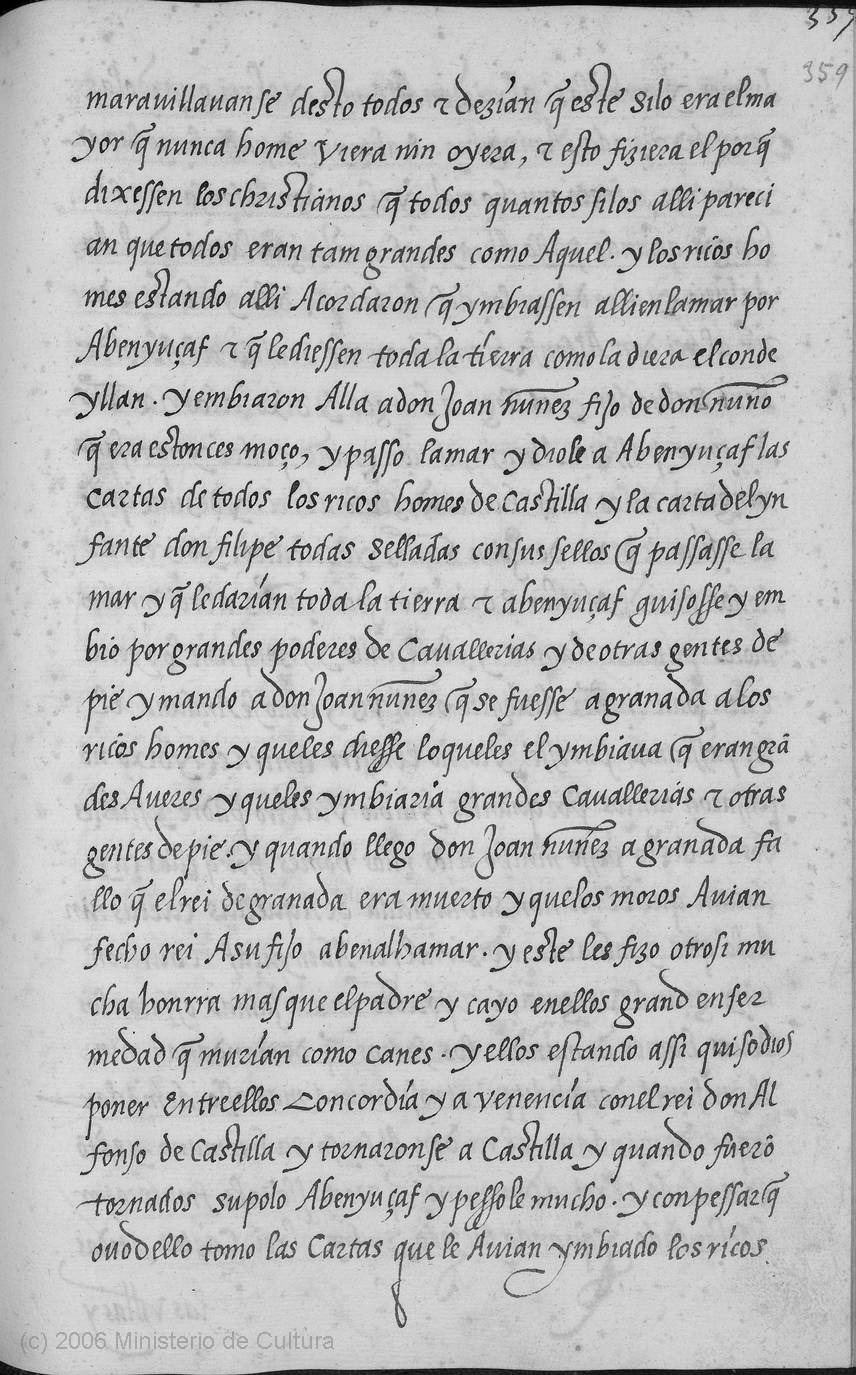 359
359
marauillauanse desto todos τ dezían q̃ este silo era el ma
yor q̃ nunca home viera nin oyera, τ esto fiziera el porq̃
dixessen los christianos q̃ todos quantos silos alli pareci
an que todos eran tam grandes como Aquel. y los ricos ho
mes estando alli Acordaron q̃ ymbiassen allien la mar por
Abenyuçaf τ q̃ le diessen toda la tierra como la diera el conde
yllan. y embiaron Alla a don Joan nunez fijo de don nuno
q̃ era estonces moço, y passo la mar y diole a Abenyuçaf las
cartas de todos los ricos homes de Castilla y la carta del yn
fante don filipe todas selladas con sus sellos q̃ passasse la
mar y q̃ le darían toda la tierra τ abenyuçaf guisosse y em
bio por grandes poderes de Cauallerias y de otras gentes de
pie y mando a don Joan nunez q̃ se fuesse a granada a los
ricos homes y queles diesse lo queles el ymbiaua q̃ eran grã
des Aueres y queles ymbiaria grandes Cauallerias τ otras
gentes de pie. y quando llego don Joan nunez a granada fa
llo q̃ el rei de granada era muerto y que los moros Auian
fecho rei A su fijo abenalhamar. y este les fizo otrosi mu
cha honrra mas que el padre y cayo en ellos grand enfer
medad q̃ murían como canes. y ellos estando assi quiso dios
poner Entre ellos Concordía y a venencía con el rei don Al
fonso de Castilla y tornaronse a Castilla y quando fuerõ
tornados supolo Abenyuçaf y pessole mucho. y con pessar q̃
ouo dello tomo las Cartas que le Auian ymbiado los ricos
(c) 2006 Ministerio de Cultura